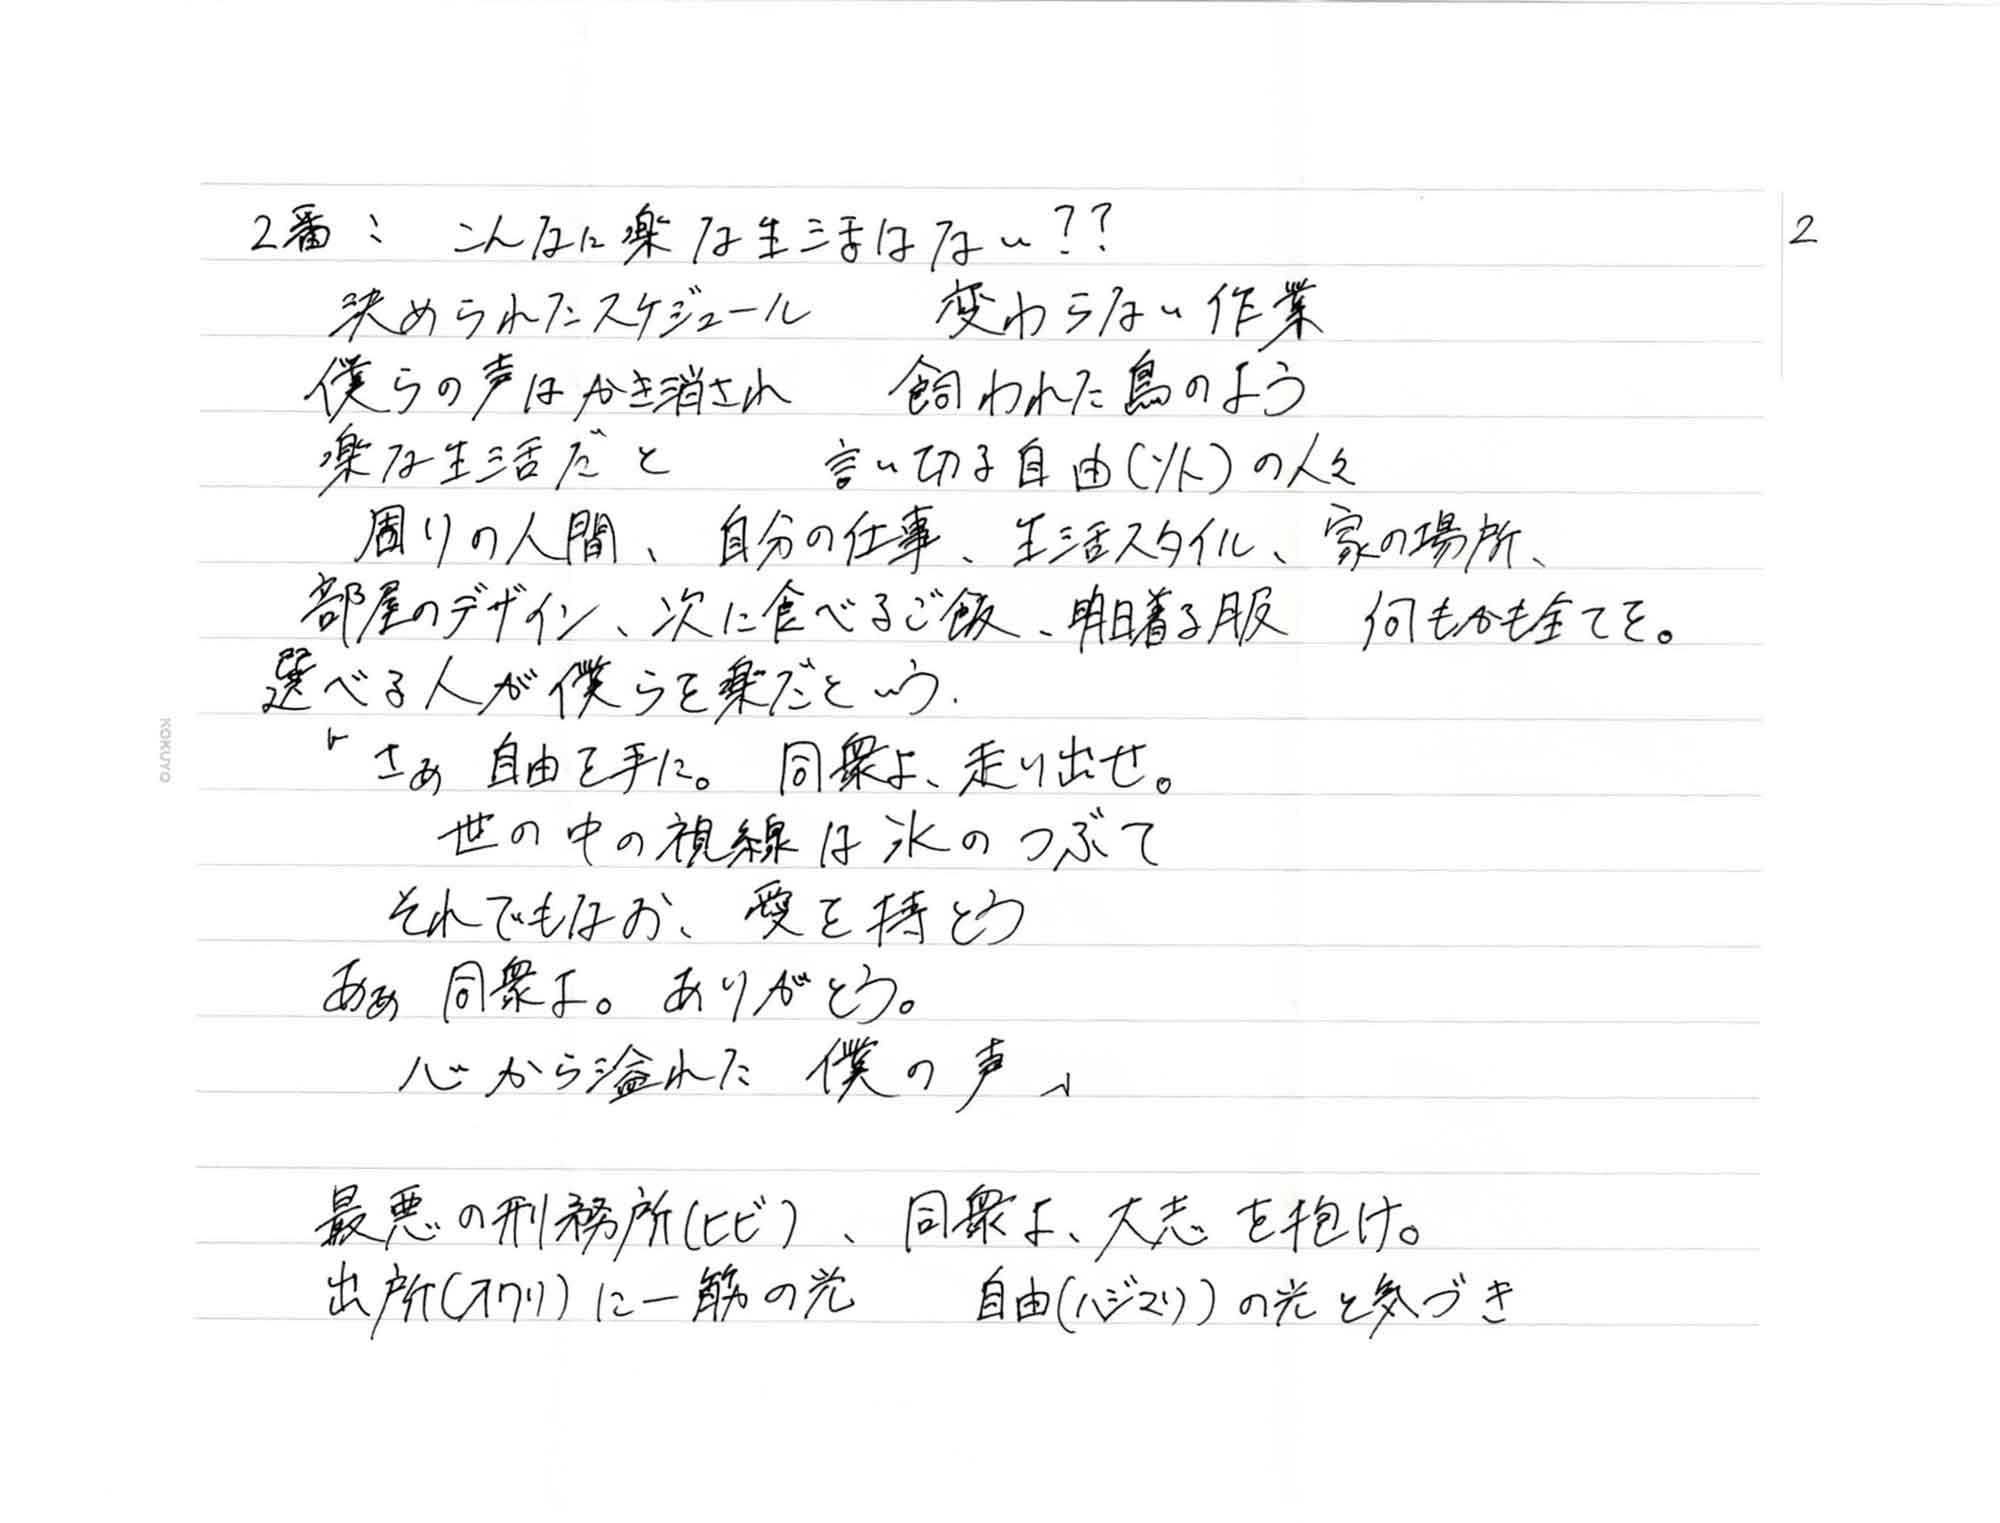 2番: こんなに楽な生活はない??
2
決められたスケジュール 変わらない作業
僕らの声はかき消され 飼われた鳥のよう
楽な生活だと 言い切る自由(ソト)の人々
周りの人間、自分の仕事、生活スタイル、家の場所、
部屋のデザイン、次に食べるご飯、明日着る服 何もかも全てを。
選べる人が僕らを楽だという.
「さぁ 自由を手に。 同衆よ、走り出せ。
世の中の視線は氷のつぶて
それでもなお、愛を持とう
あぁ 同衆よ。ありがとう。
心から溢れた 僕の声」
最悪の刑務所(ヒビ)、同衆よ、大志を抱け。
出所(オワリ)に一筋の光 自由(ハジマリ)の光と気づき
KOKUYO